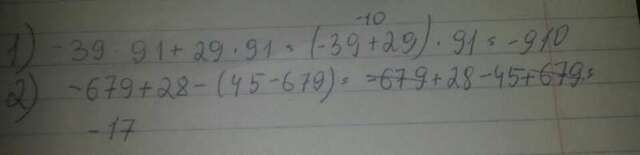 -10
1) -39·91+29·91=(-39+29)·91=-910
2) -679+28-(45-679)= -679+28-45+679=
-17